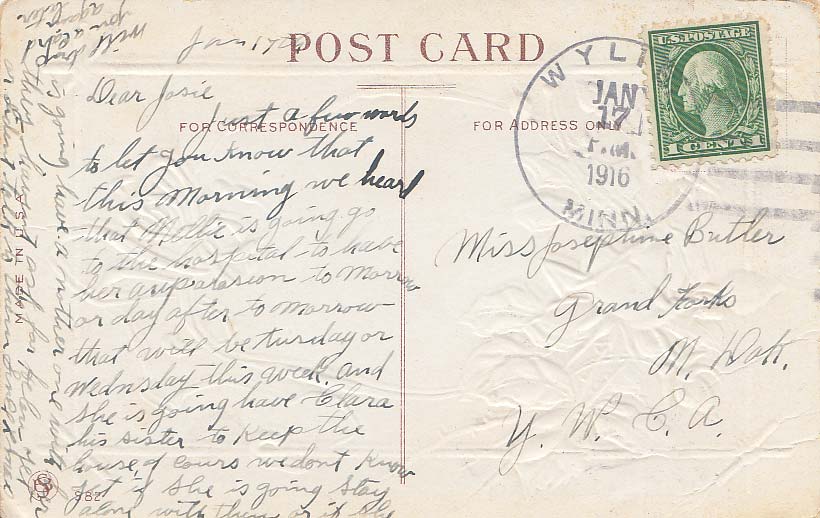 Jan 17
POST CARD
WYLIE
JAN
17
P.M.
1916
MINN.
U.S.POSTAGE
1 CENT 1
FOR CORRESPONDENCE
FOR ADDRESS ONLY
Dear Josie
Just a few words
to let you know that
this Morning we heard
that Mollie is going go
to the hospital to have
her aupparasion to Morrow
or day after to morrow
that will be tursday or
Wednsday this week. and
she is going have Clara
his sister to keep the
house, of cours we dont know
yet if she is going stay
alone with them or if she
is going have a nother one with her
will drop
you a card
again later
Miss Josephine Butler
Grand Forks
N. Dak.
Y. W. C. A.
MADE IN U.S.A.
882